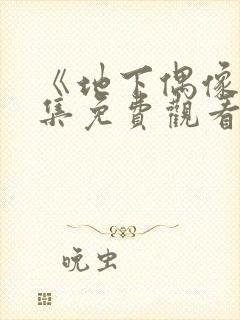 《地下偶像
集免費觀看
晚虫